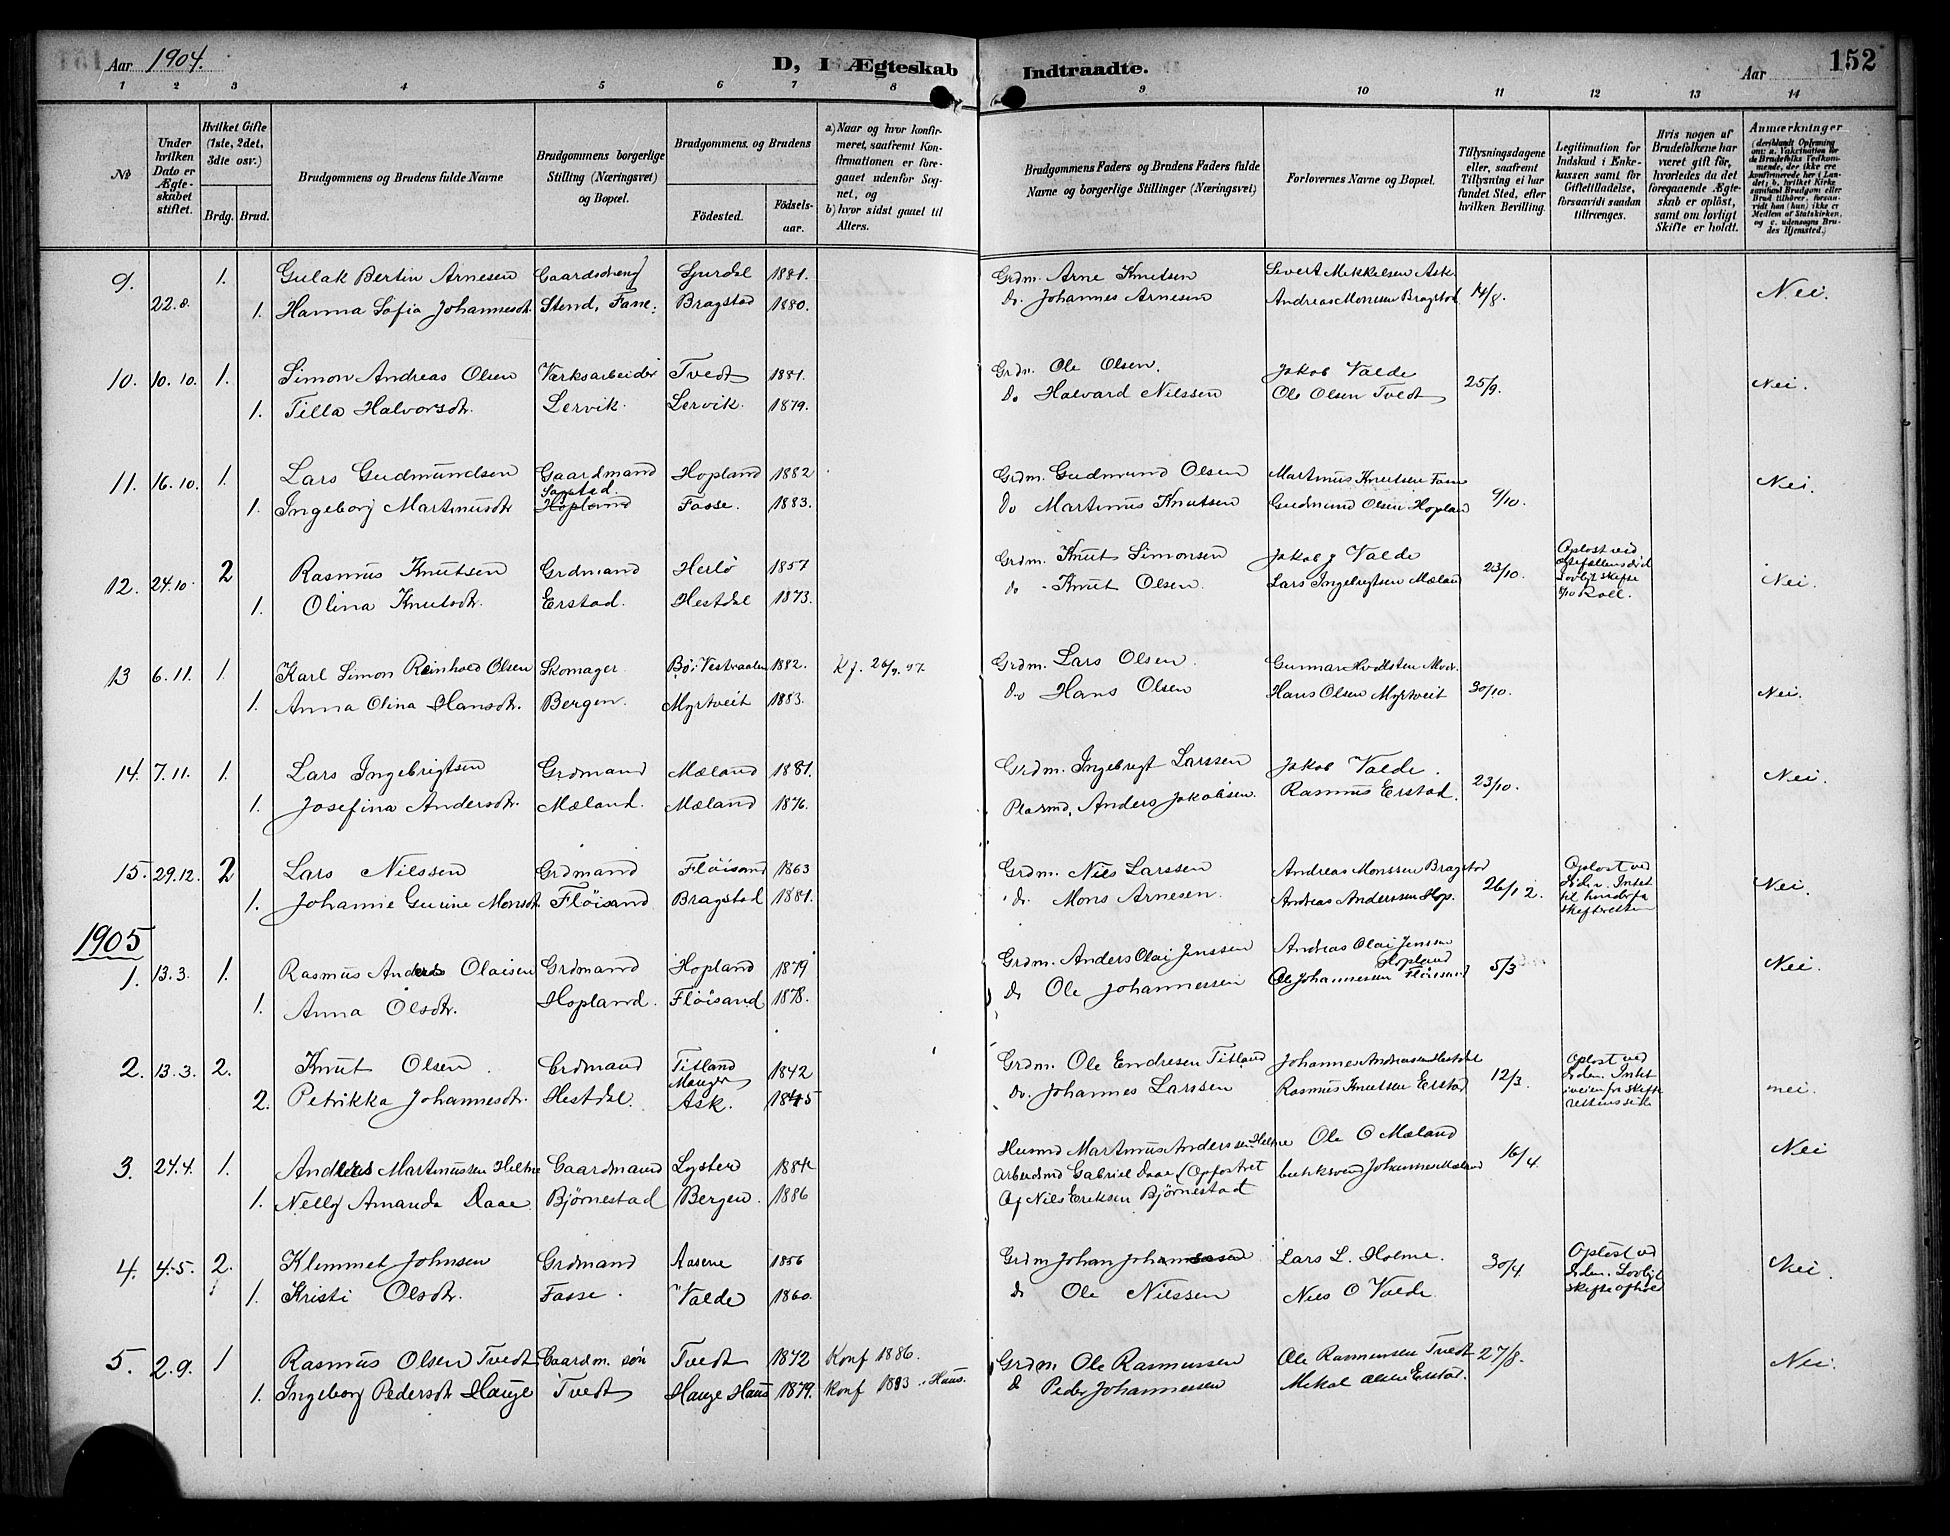 Aar 1904. D, I Ægteskab Indtraadte. Aar 152
1 2 3 4 5 6 7 8 9 10 11 12 13 14
No
Under hvilken Dato er Ægteskabet stiftet.
Hvilket Gifte (1ste, 2det, 3die osv.)
Brdg. Brud.
Brudgommens og Brudens fulde Navne
Brudgommens borgerlige Stilling (Næringsvei) og Bopæl.
Brudgommens og Brudens
Födested. Födselsaar.
a) Naar og hvor konfirmeret, saafremt Konfirmationen er foregaaet udenfor Sognet, og
b) hvor sidst gaaet til Alters.
Brudgommens Faders og Brudens Faders fulde Navne og borgerlige Stillinger (Næringsvei)
Forlovernes Navne og Bopæl.
Tillysningsdagene eller, saafremt Tillysning ei har fundet Sted, efter hvilken Bevilling.
Legitimation for Indskud i Enkekassen samt for Giftetilladelse, forsaavidt saadan tiltrænges.
Hvis nogen af Brudefolkene har været gift för, hvorledes da det foregaaende Ægteskab er oplöst, samt om lovligt Skifte er holdt.
Anmærkninger (deriblandt Oplysning om: a. Vaksination for de Brudefolks Vedkommende, der ikke ere konfirmerede her i Landet, b. hvilket Kirkesamfund Brudgom eller Brud tilhörer, forsaavidt han (hun) ikke er Medlem af Statskirken, og c. udensogns Brudes Hjemsted.)
9. 1. Gulak Bertin Arnesen Gaardsdreng 1881. Grdm. Arne Knutsen Sivert Mikkelsen Ask
22.8. 1. Hanna Sofia Johannesdtr. Stend, Fane: Bragstad 1880. Do. Johannes Arnesen Andreas Monsen Bragstad 14/8. Nei.
10. 10.10. 1. Simon Andreas Olsen Værksarbeider Tvedt 1881. Grdm. Ole Olsen. Jakob Valde 25/9. Nei.
1. Tilla Halvorsdtr. Lervik. Lervik. 1879. Do Halvard Nilssen Ole Olsen Tvedt
11. 16.10. 1. Lars Gudmundsen Gaardmand Hopland 1882 Grdm. Gudmund Olsen Martinus Knutsen Fosse Nei.
Sagstad.
1. Ingeborg Martinusdtr Hopland Fosse. 1883. Do Martinus Knutsen Gudmund Olsen Hopland 9/10.
12. 24.10. 2 Rasmus Knutsen Grdmand Herlö 1857 Grdm. Knut Simonsen Jakob J Valde 23/10. Oplöst ved
ægtefællens död
Lovligt skifte
Roll. Nei.
1. Olina Knutsdtr. Erstad. Hestdal 1873. do Knut Olsen. Lars Ingebrigtsen Mæland
13 6.11. 1. Karl Simon Reinhold Olsen Skomager. Bø i Vestraalen 1882. Kf. 26/9. 97. Grdm. Lars Olsen.
1. Anna Olina Hansdtr. Bergen. Myrtveit 1883. Do Hans Olsen Hans Olsen Myrtveit 30/10. Nei.
14. 7.11. 1. Lars Ingebrigtsen Grdmand Mæland 1881. Grdm. Ingebrigt Larssen Jakob Valde. 23/10. Nei.
1. Josefina Andersdtr. Mæland. Mæland 1876. Plasmd, Anders Jakobsen. Rasmus Erstad.
15. 29.12. 2 Lars Nilssen Grdmand Flöisand 1863 Grdm. Nils Larssen Andreas Monssen Bragstad 26/12. Oplöst ved
Döden. Intet
til hinder fra
skifteretten Nei.
1. Johanne Gurine Monsdtr. Flöisand Bragstad 1881. do. Mons Arnesen. Andreas Anderssen Hop.
1905
1. 13.3. 1. Rasmus Andreas Olaisen Grdmand Hopland 1879 Grdm. Anders Olai Jenssen Andreas Olai Jenssen
Hopland 5/3 Nei.
1. Anna Olsdtr. Hopland. Flöisand 1878. Do Ole Johannessen Ole Johannessen Flöisand
2. 13.3. 2. Knut Olsen. Grdmand Titland
Manger 1842 Grdm. Ole Endresen Titland Johannes Andreassen Hestdal 12/3. Oplöst ved
Döden. Intet
iveien fra skifte
rettens side nei.
2. Petrikka Johannesdtr. Hestdal. Ask. 1845 do. Johannes Larssen Rasmus Knutsen Erstad
3. 24.4. 1. Andreas Martinussen Helene Gaardmand Lyster 1884 Husmd Martinus Anderssen Helene Ole O Mæland 16/4. Nei
Arbeidsmd Gabriel Daae (Opfostret Johannes Mæland
1. Nelly Amanda Daae. Bjørnestad Bergen. 1886 Af Nils Eriksen Bjørnestad
4. 4.5. 2. Klemmet Johnsen Grdmand Aasene 1856 Grdm Johan Johannesen Lars L. Holme. 30/4. Oplöst ved
Döden. Lovligt
skifte afhold Nei.
1. Kristi Olsdtr. Fosse. Valde 1860. do Ole Nilssen Nils O Valde.
5. 2.9. 1 Rasmus Olsen Tvedt Gaardm. sön Tvedt 1872 Konf 1886. Grdm. Ole Rasmussen Ole Rasmussen Tvedt 27/8. Nei.
1. Ingeborg Pedersdtr Hauge Tvedt Hauge Haus 1879. Konf 1893 i Haus. Do Peder Johannessen Mikal Olsen Erstad.